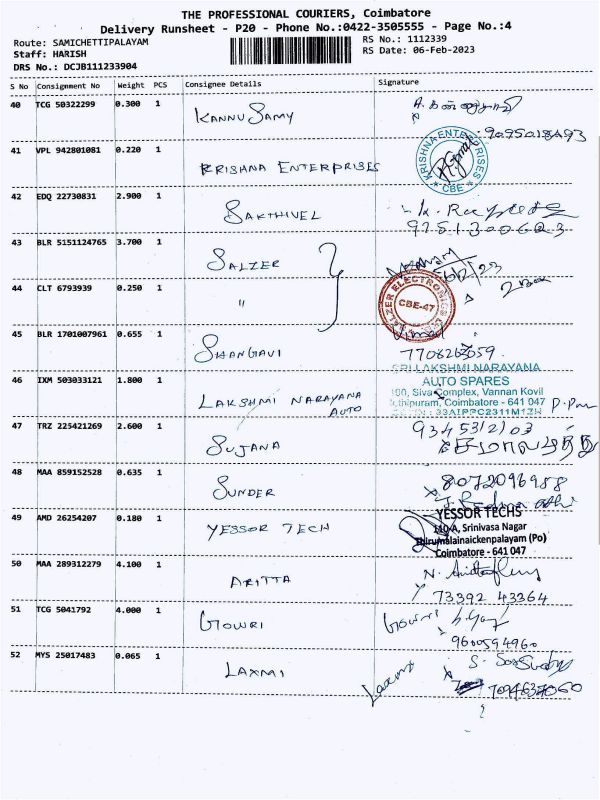 THE PROFESSIONAL COURIERS, Coimbatore
Delivery Runsheet - P20 - Phone No.:0422-3505555 - Page No.:4
Route: SAMICHETTIPALAYAM RS No.: 1112339
Staff: HARISH RS Date: 06-Feb-2023
DRS No.: DCJB111233904
S No Consignment No Weight PCS Consignee Details Signature
40 TCG 50322299 0.300 1 KANNU SAMY
9095018493
41 VPL 942801081 0.220 1 KRISHNA ENTERPRISES
KRISHNA ENTERPRISES
* CBE *
42 EDQ 22730831 2.900 1 SAKTHIVEL
43 BLR 5151124765 3.700 1 SALZER
44 CLT 6793939 0.250 1 "
SALZER ELECTRONICS
CBE-47
45 BLR 1701007961 0.655 1 SHANGAVI
SRI LAKSHMI NARAYANA
46 IXM 503033121 1.800 1 LAKSHMI NARAYANA AUTO
AUTO SPARES
100, Siva Complex, Vannan Kovil
Coimbatore - 641 047
47 TRZ 225421269 2.600 1 SUJANA
48 MAA 859152528 0.635 1 SUNDER 8072096988
49 AMD 26254207 0.180 1 YESSOR TECH
YESSOR TECHS
110-A, Srinivasa Nagar
Thirumalainaickenpalayam (Po)
Coimbatore - 641 047
50 MAA 289312279 4.100 1 ARITTA
73392 43364
51 TCG 5041792 4.000 1 GOWRI Gowri
9600594960
52 MYS 25017483 0.065 1 LAXMI Laxmi